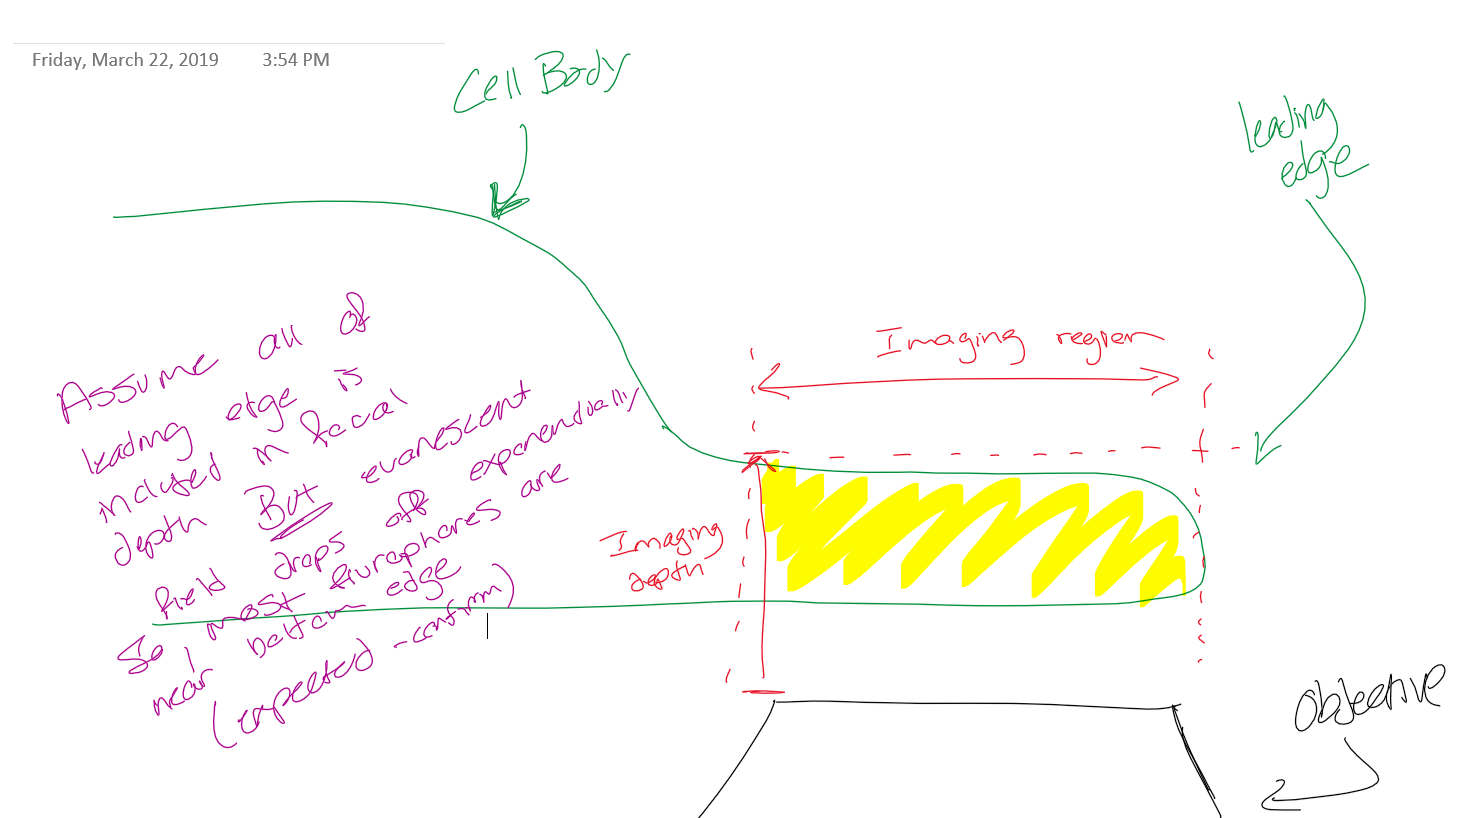 Friday, March 22, 2019 3:54 PM
Cell Body
leading
edge
Imaging region
Assume all of
leading edge is
included in focal
depth But evanescent
field drops off exponendially
So, most flurophores are
near bottom edge
(expected - confirm)
Imaging
depth
Objective